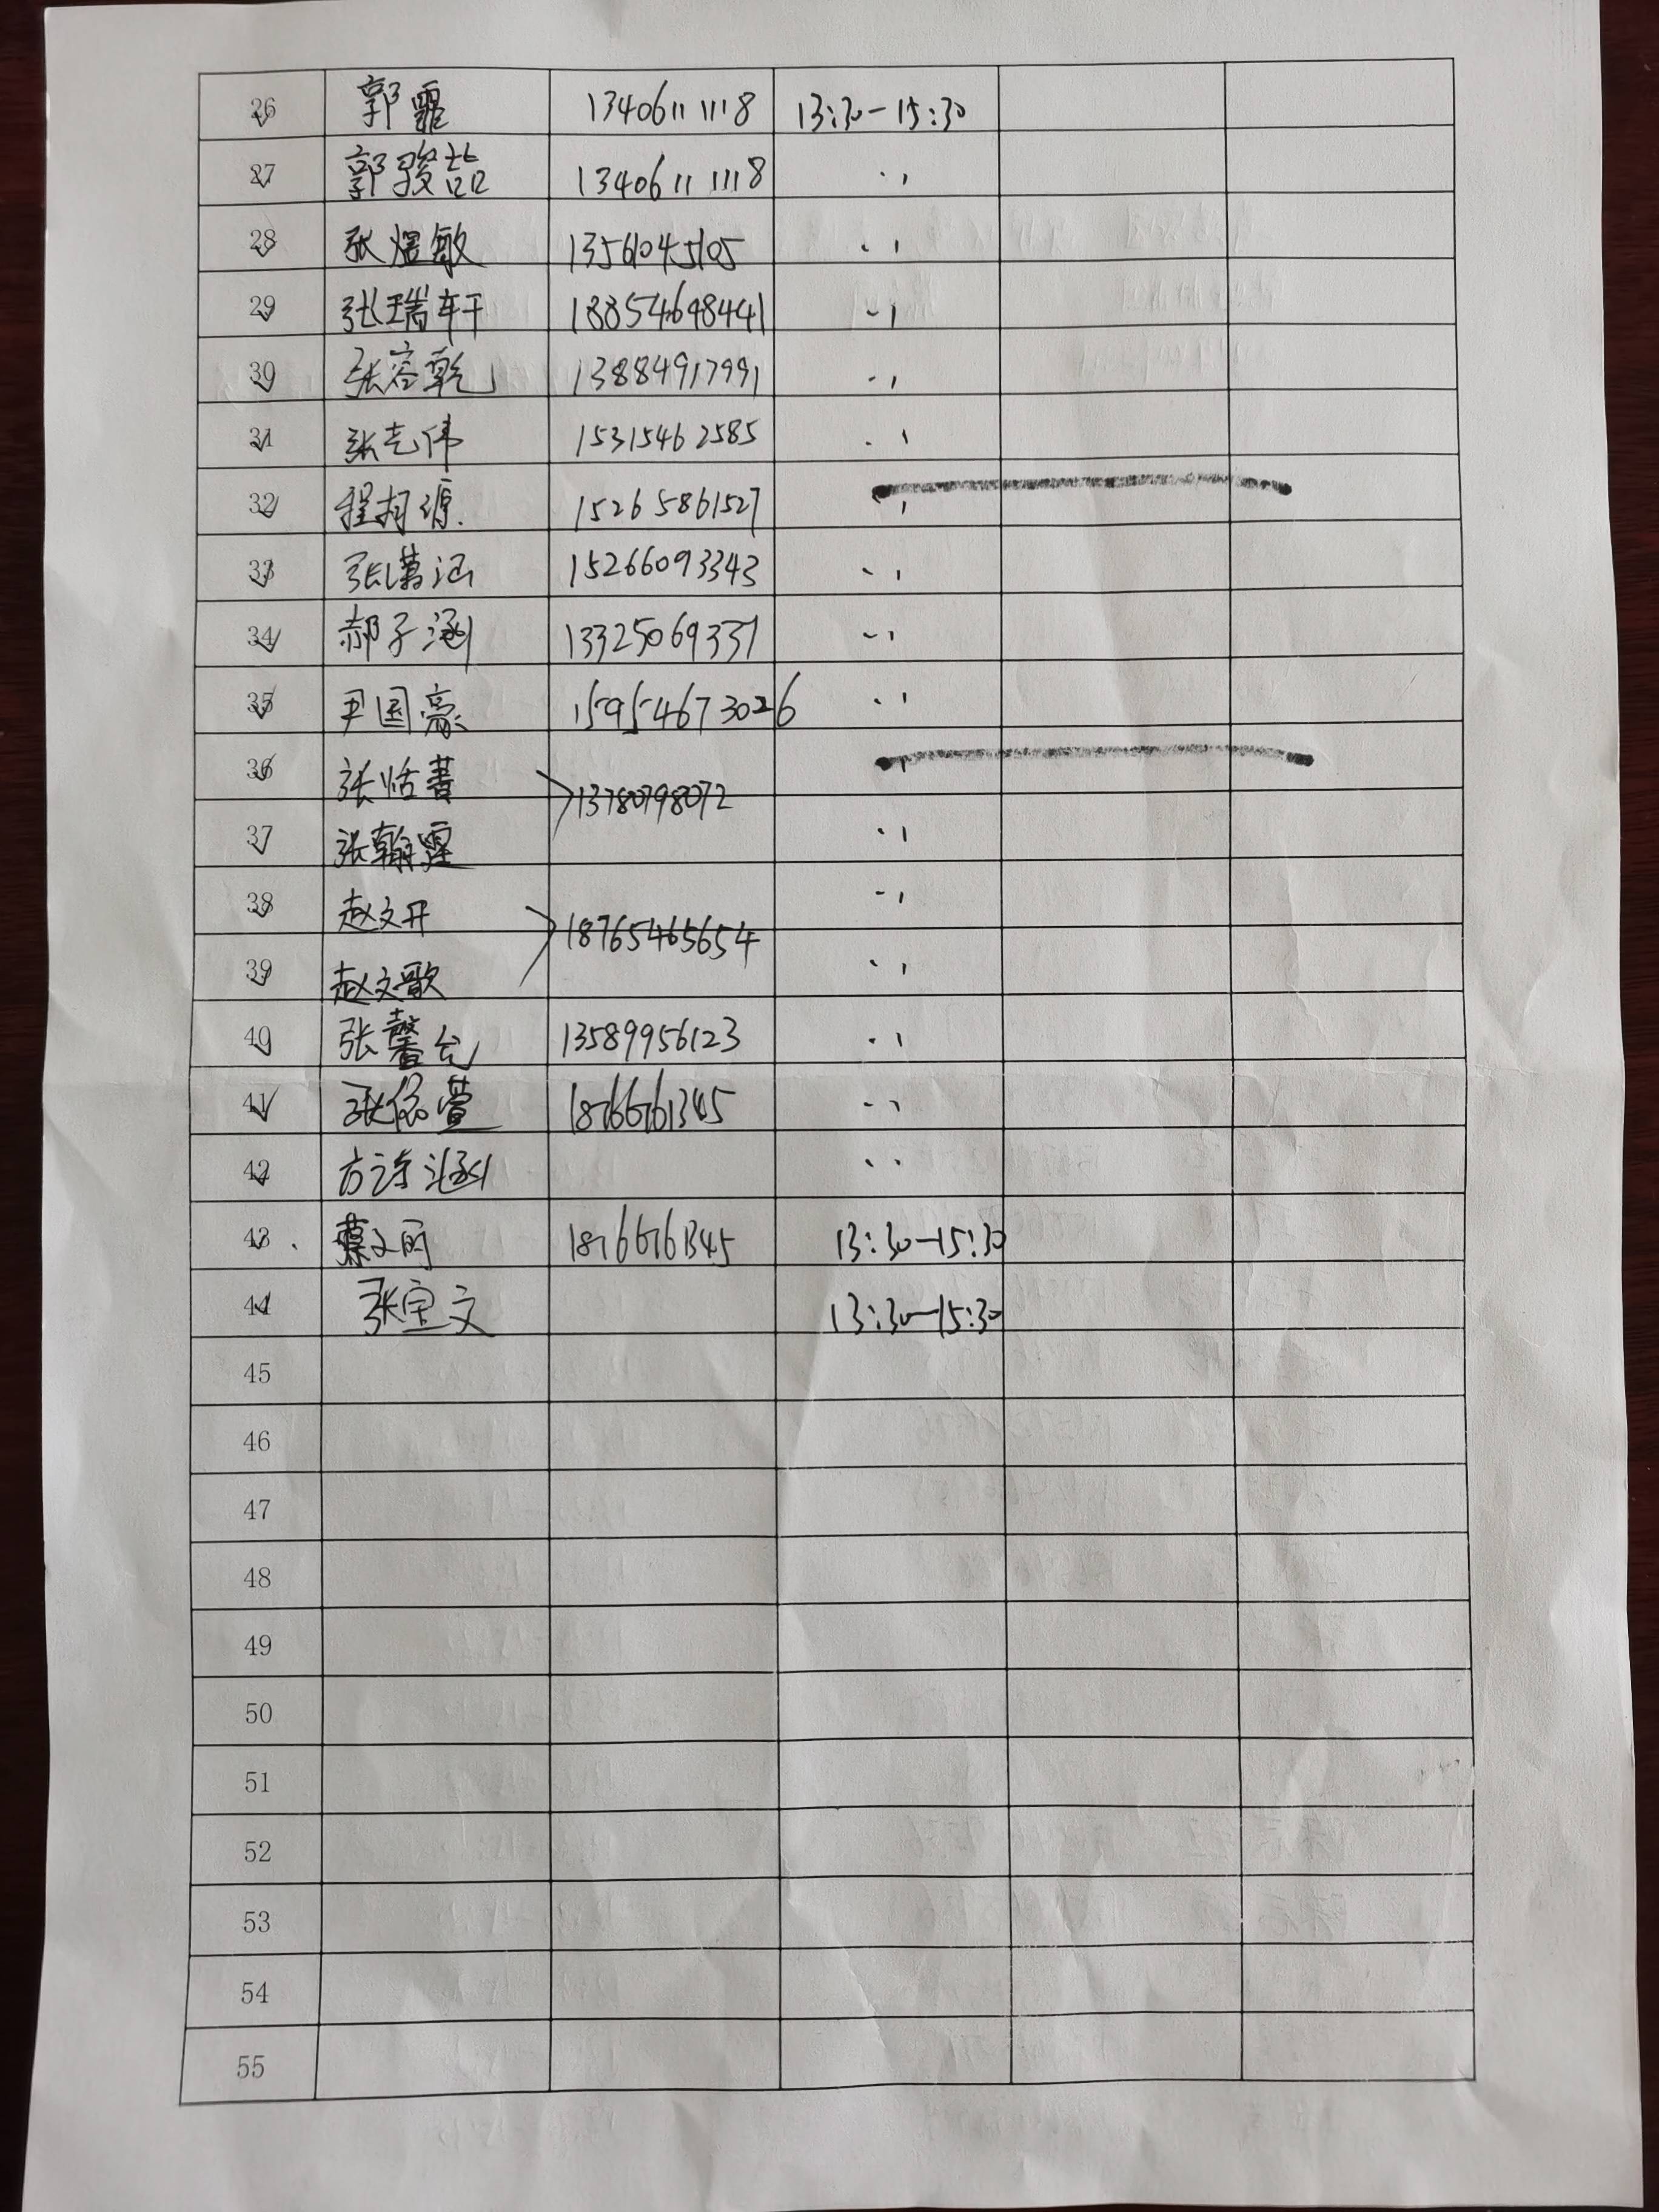 26 郭 13406111118 13:30-15:30
27 郭骏喆 13406111118 〃
28 张煜敏 13561045105 〃
29 张瑞轩 18854698441 〃
30 张容乾 13884917991 〃
31 张志伟 15315462585 〃
32 程柯源 15265861527 〃
33 张涵 15266093343 〃
34 郝子涵 13325069337 〃
35 尹国豪 15954673026 〃
36 张恬菁 13780798072 〃
37 张翰霆 〃
38 赵文开 18765465654 〃
39 赵文歌 〃
40 张馨允 13589956123 〃
41 张依萱 18766761345 〃
42 方诗涵 〃
43 蔡文丽 18766761345 13:30-15:30
44 张宝文 13:30-15:30
45
46
47
48
49
50
51
52
53
54
55